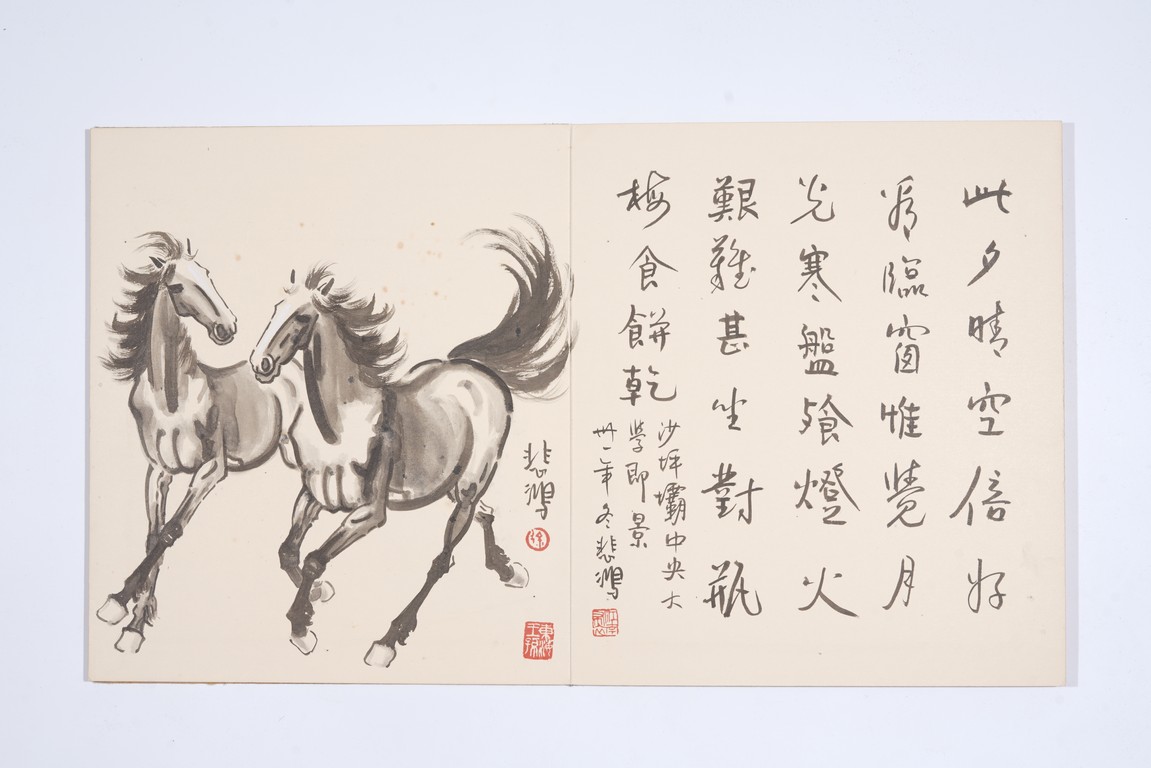 此夕晴空倍好
看臨窗惟覺月
光寒盤飱燈火
艱難甚坐對瓶
梅食餅乾
沙坪壩中央大
學即景
卅一年冬悲鴻
悲鴻
徐
東海
王孫